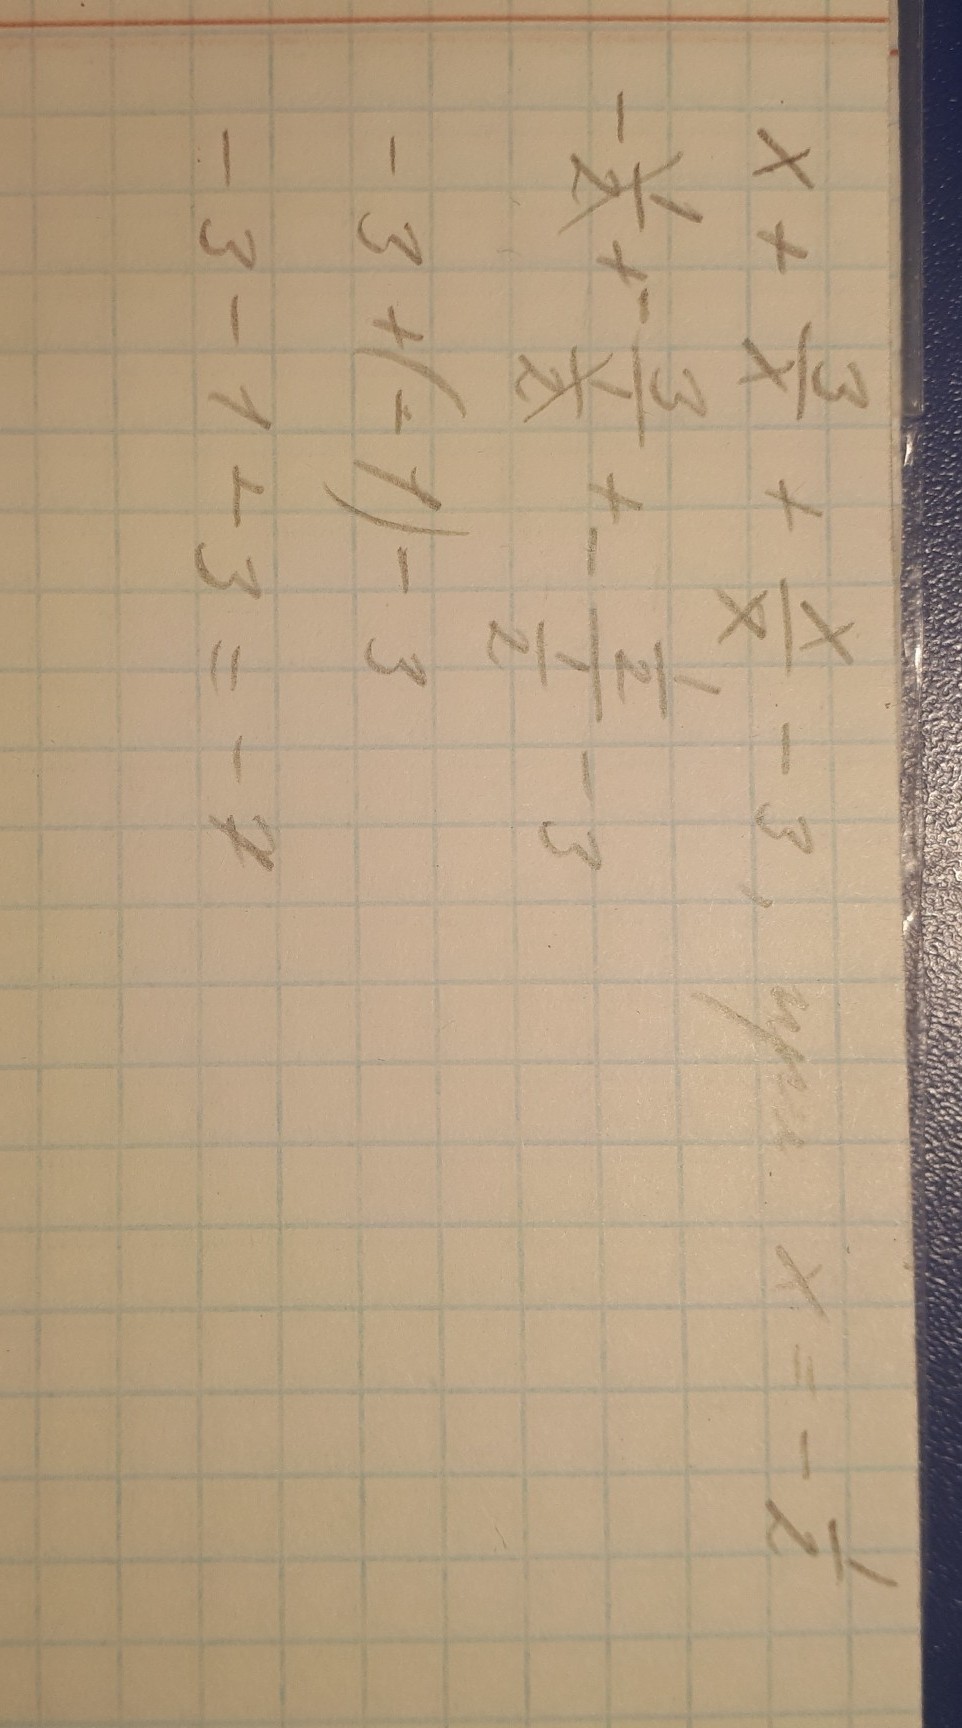 x + 3/x + x/x - 3, при x = - 1/2
- 1/2 + - 3/(1/2) + - (1/2)/(1/2) - 3
- 3 + (- 1) - 3
- 3 - 1 - 3 = - 7